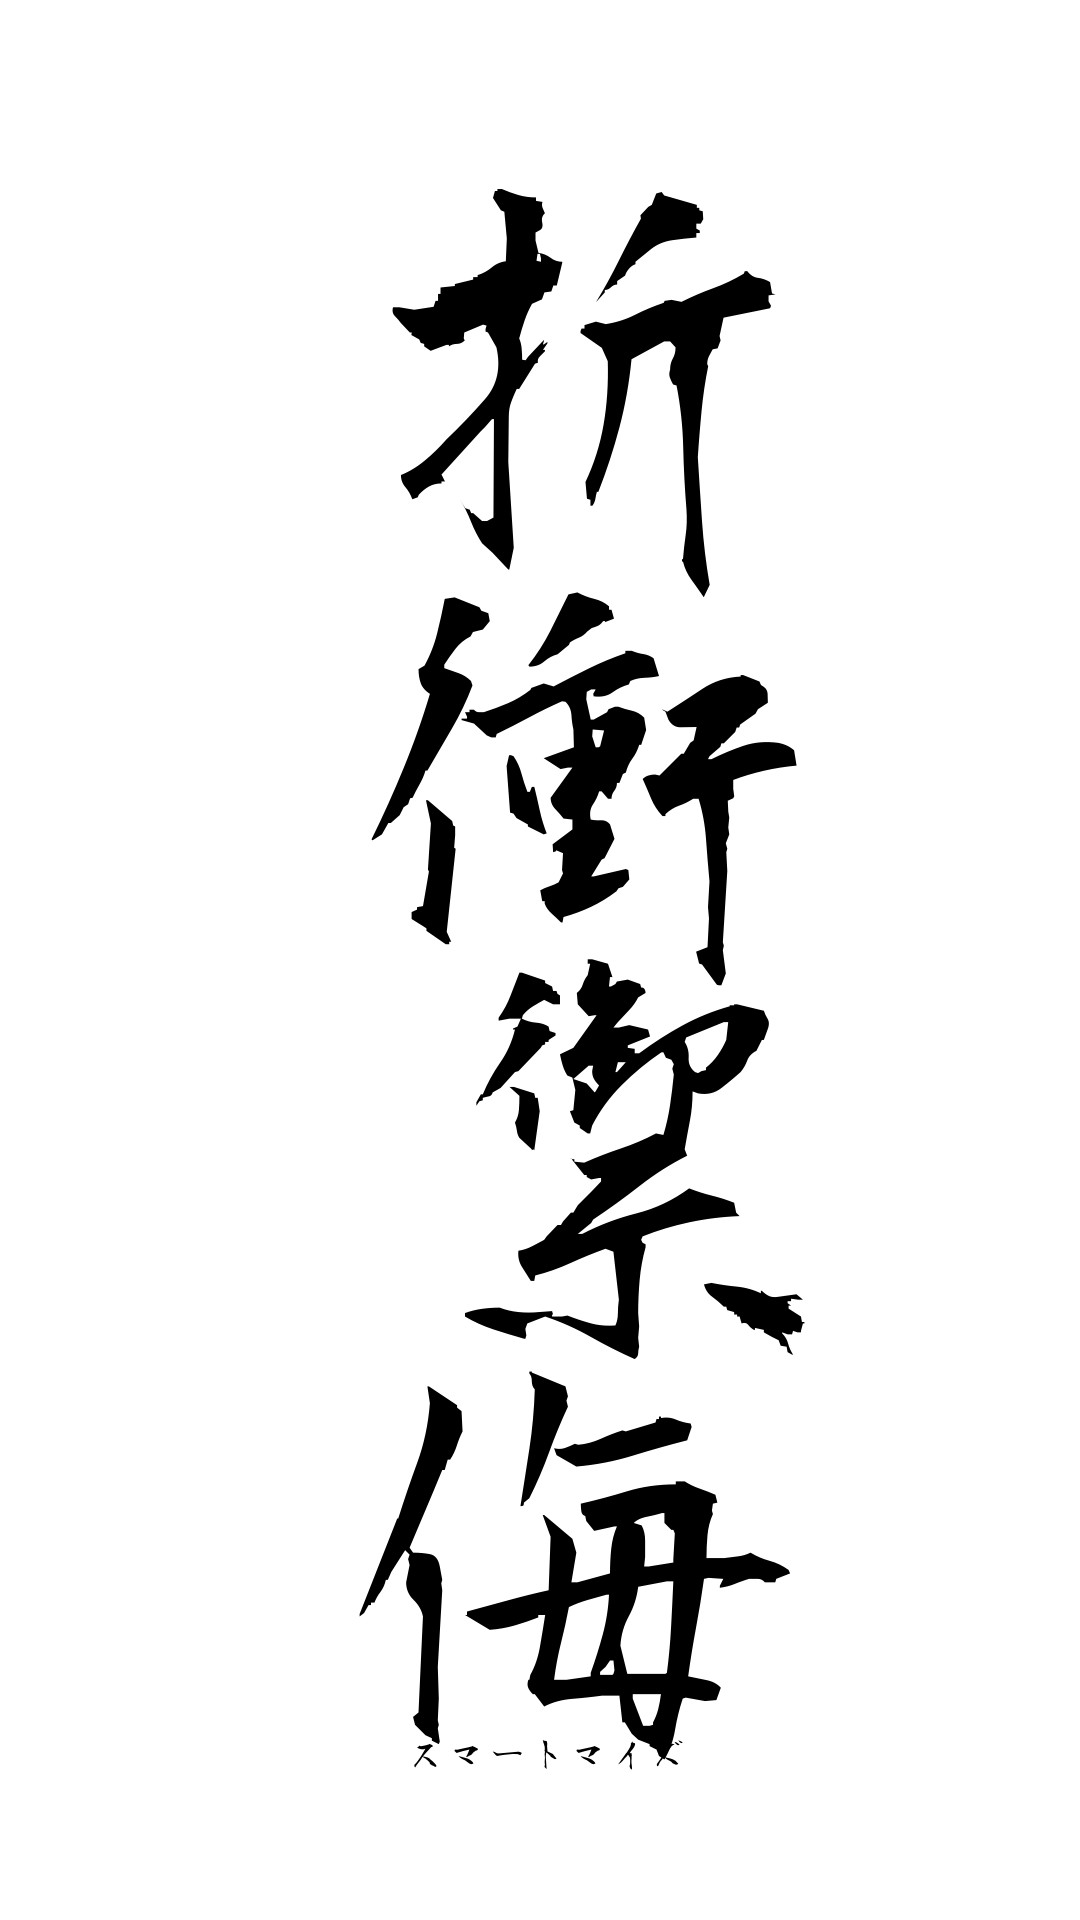 折衝禦侮
スマートマイズ